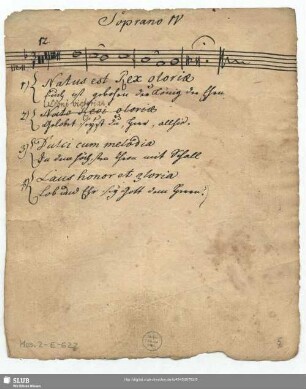 Soprano IV
12
1) Natus est Rex gloriæ
Euch ist gebohren der König der Ehren
2) Nato Regi gloriæ
Gelobet seyst du, Herr, allhie.
3) Dulci cum melodia
In dem höchsten Thron mit Schall
4) Laus honor et gloria
Lob und Ehr sey Gott dem Herrn.
Mus. 2-E-523
5
SLUB